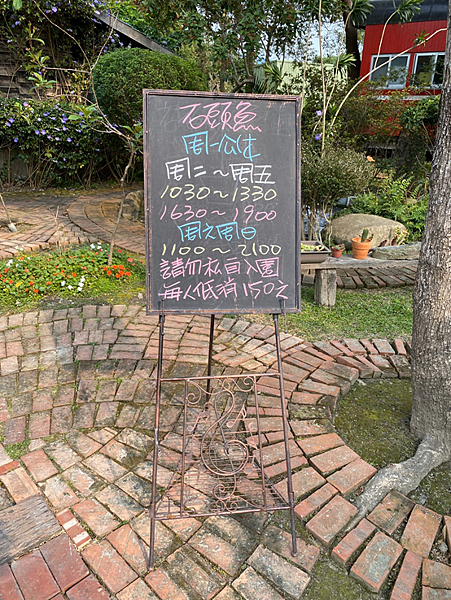 石頭魚
周一公休
周二～周五
1030～1330
1630～1900
周六周日
1100～2100
請勿私自入園
每人低消150元